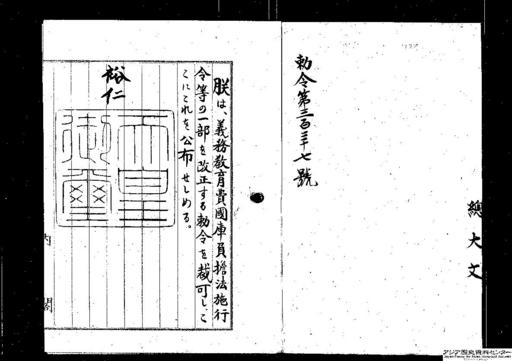 勅令第三百三十七號
總大文
朕は、義務教育費國庫負擔法施行
令等の一部を改正する勅令を裁可し、こ
こにこれを公布せしめる。
裕仁
天皇
御璽
内閣
アジア歴史資料センター